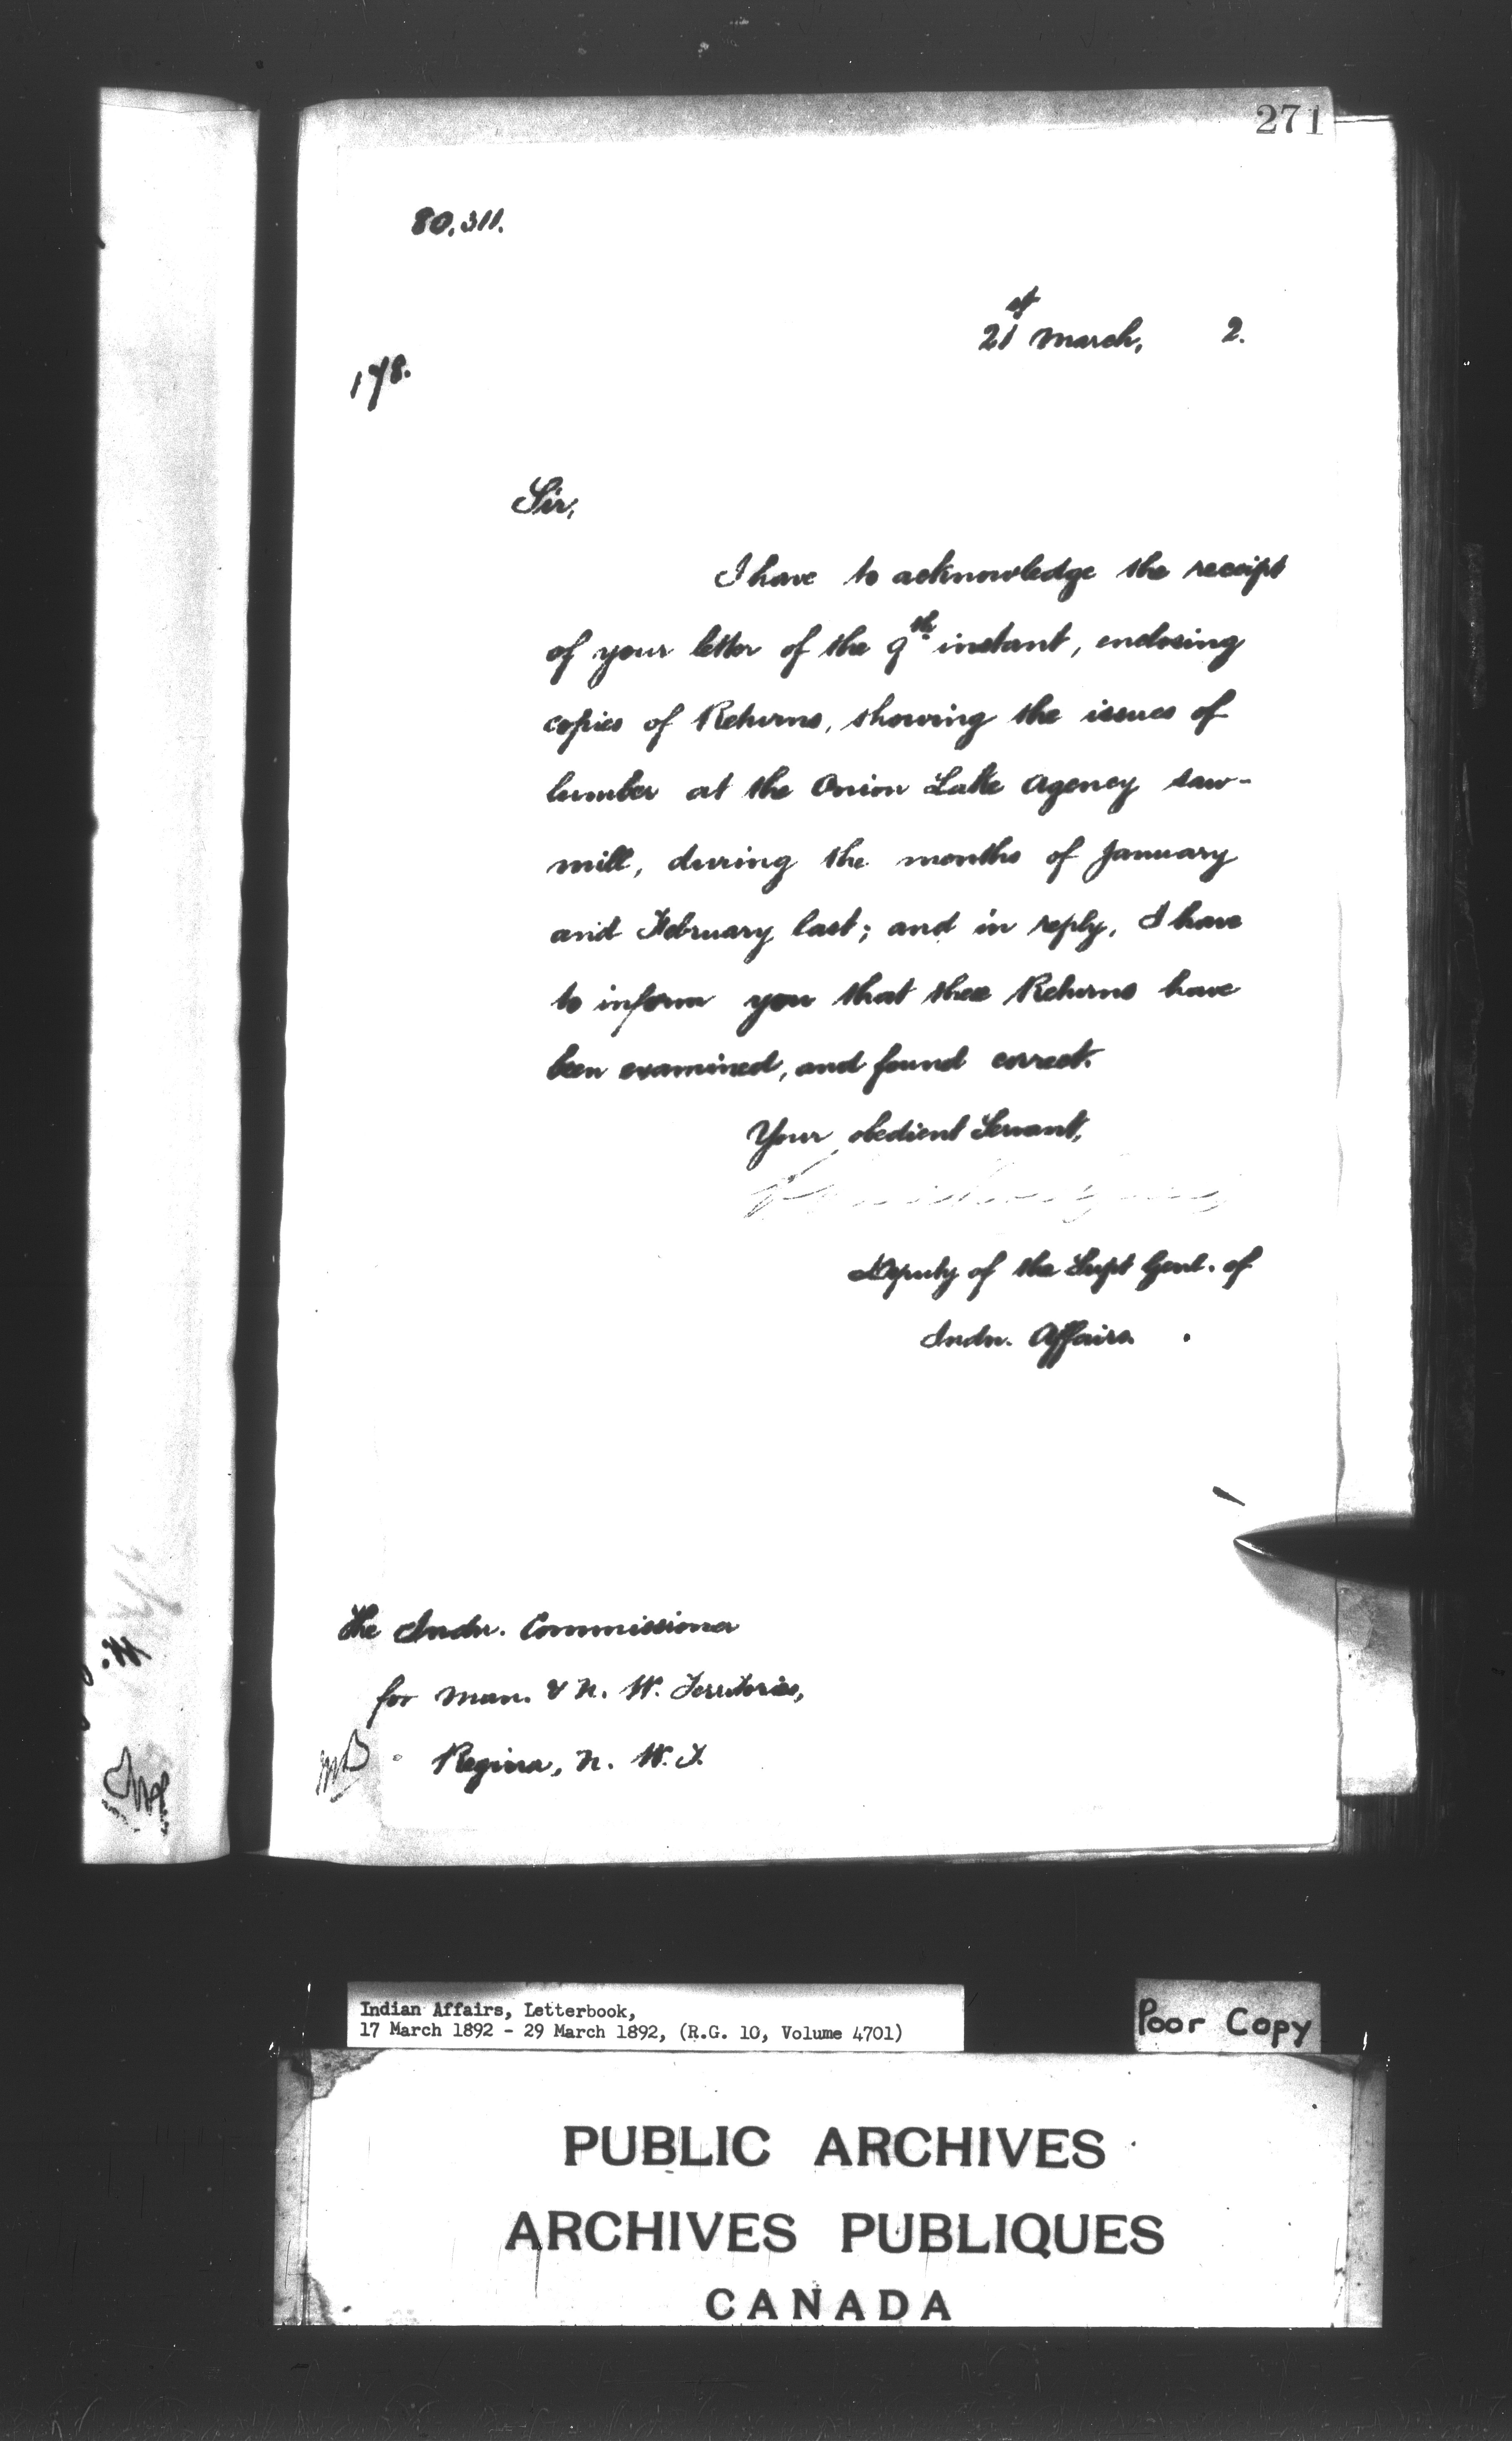 271
80.311.
21st March, 2.
178.
Sir,
I have to acknowledge the receipt
of your letter of the 9th instant, enclosing
copies of Returns, showing the issues of
lumber at the Onion Lake Agency saw-
mill, during the months of January
and February last; and in reply, I have
to inform you that these Returns have
been examined, and found correct.
Your obedient Servant,
Deputy of the Supt Genl. of
Indn. Affairs.
The Indn. Commissioner
for Man. & N. W. Territories,
Regina, N. W. T.
Indian Affairs, Letterbook,
17 March 1892 - 29 March 1892, (R.G. 10, Volume 4701)
Poor Copy
PUBLIC ARCHIVES
ARCHIVES PUBLIQUES
CANADA